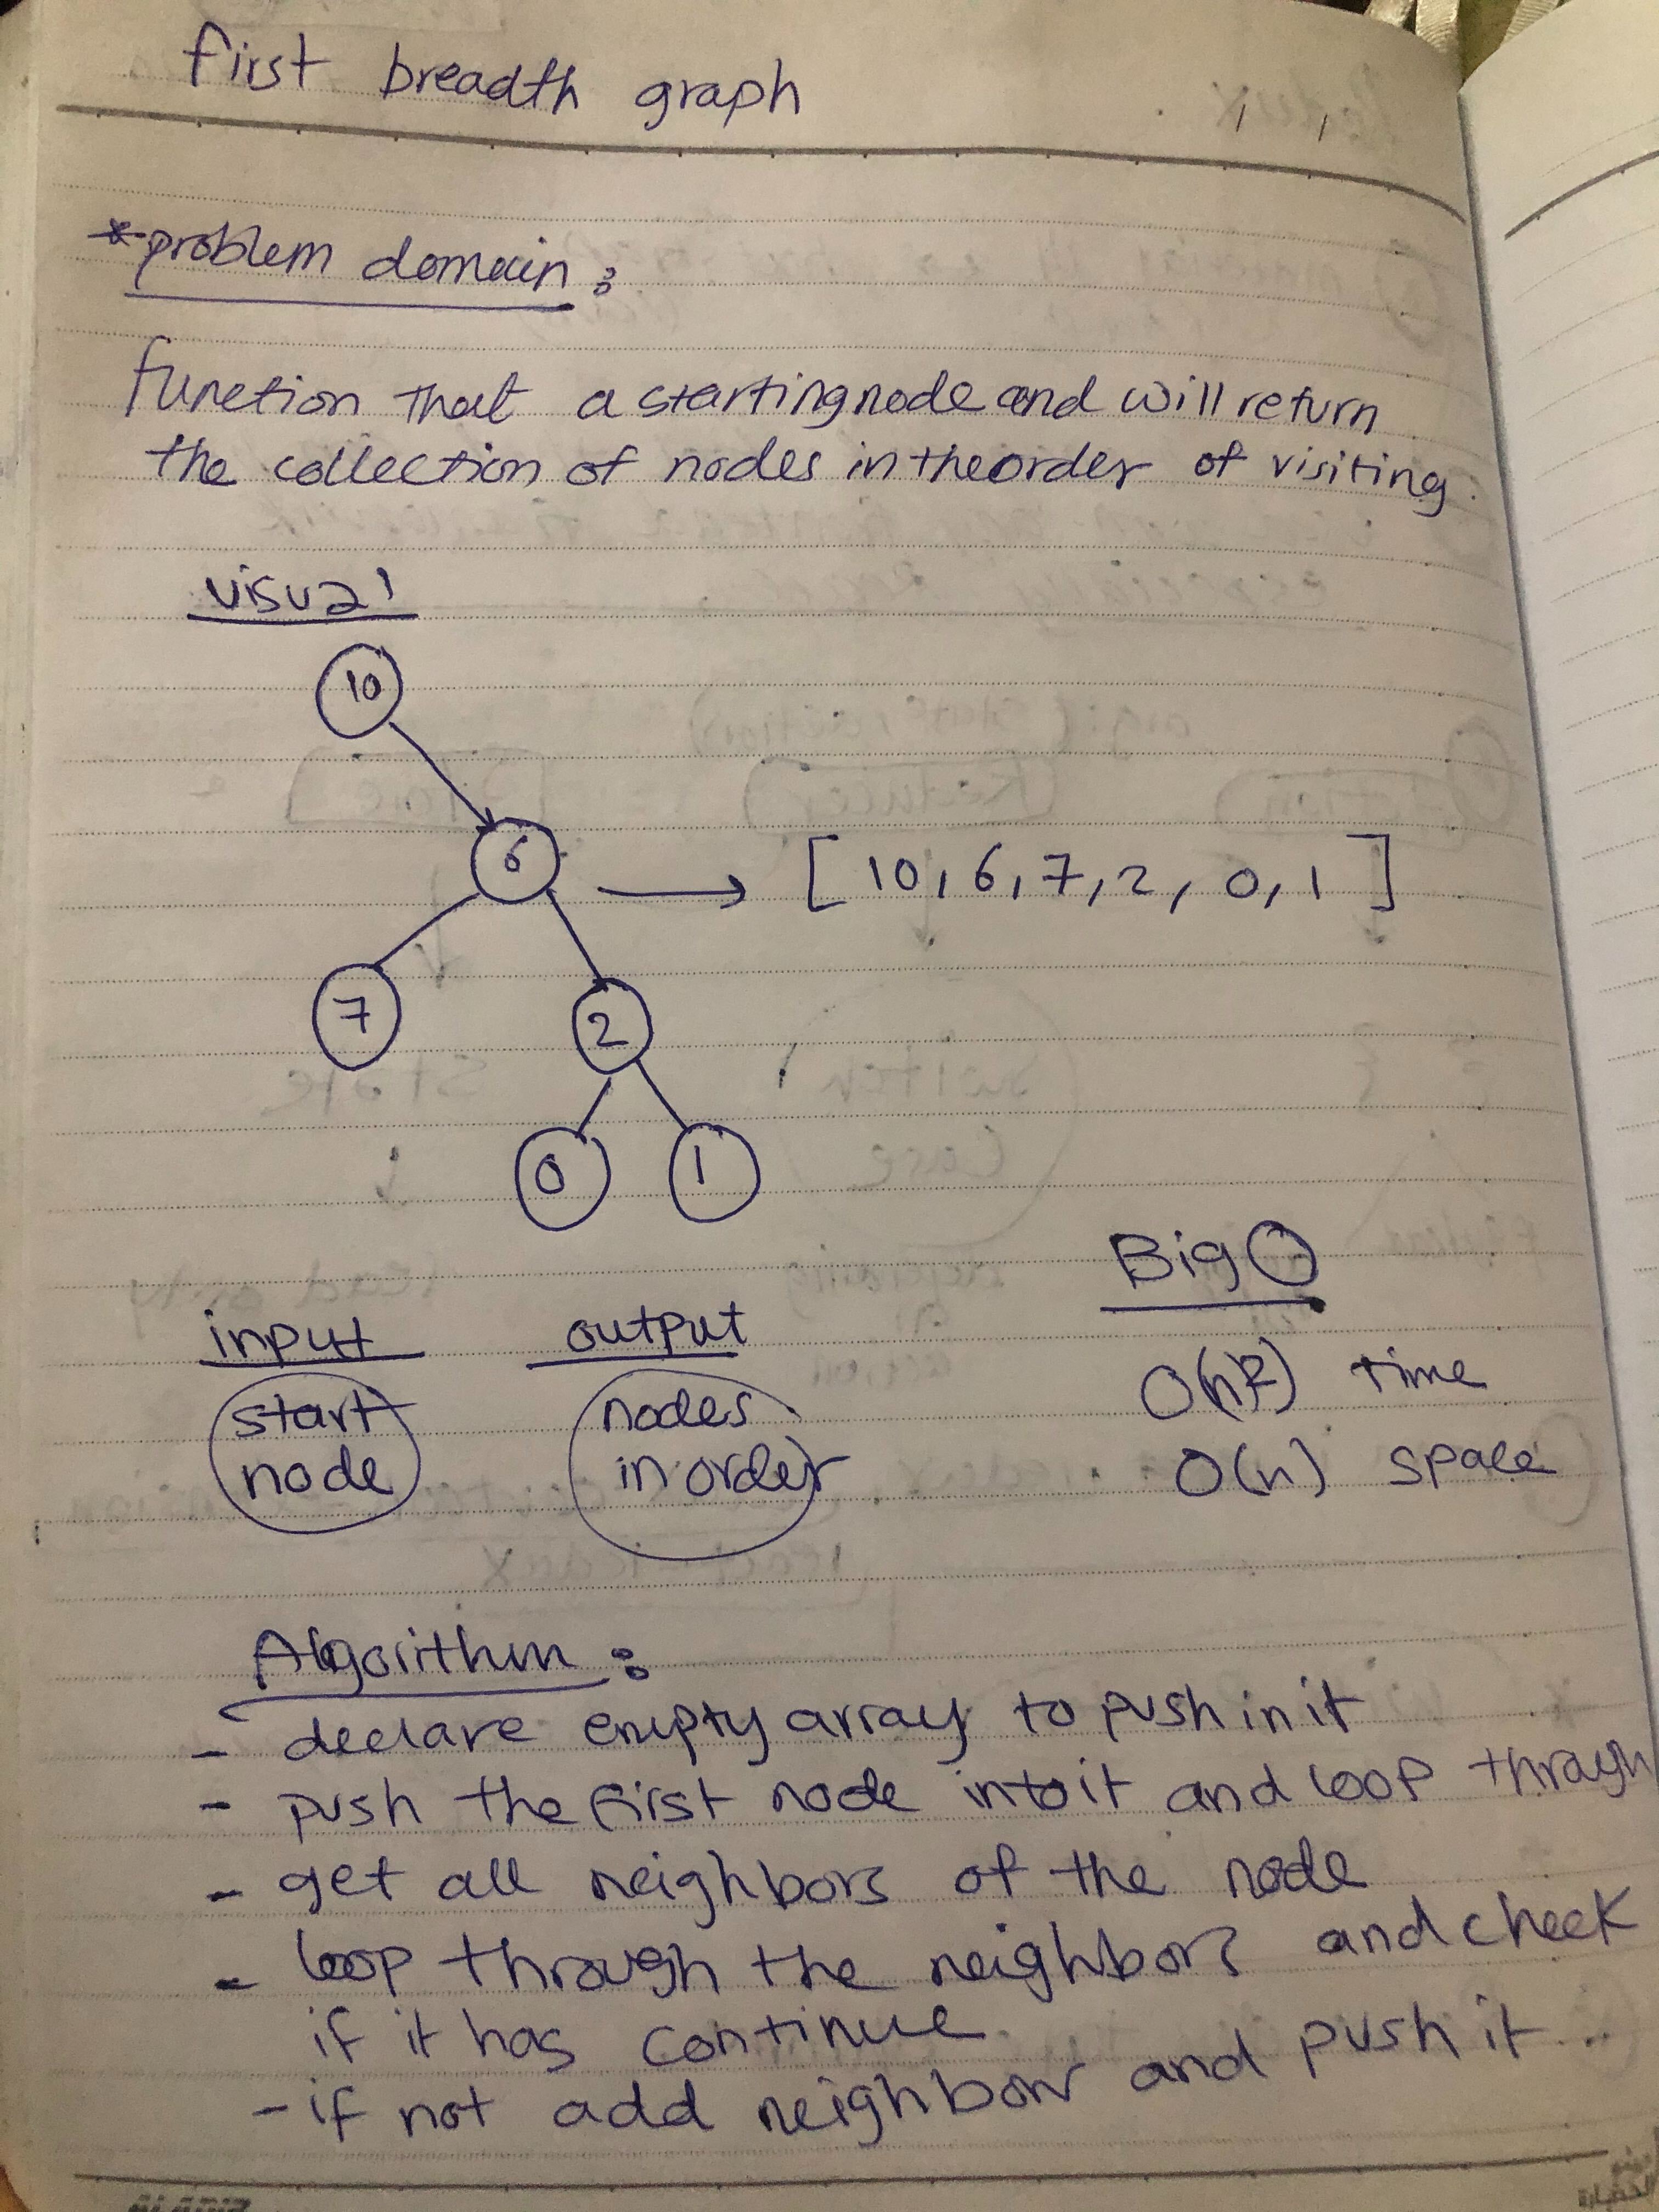 first breadth graph
*problem domain :
function that a starting node and will return
the collection of nodes in the order of visiting.
visual
10
6
[ 10, 6, 7, 2, 0, 1 ]
7
2
0
1
Big O
input
output
O(n^2) time
start
node
nodes
in order
O(n) space
Algorithm :
- declare empty array to push in it
- push the first node into it and loop through
- get all neighbors of the node
- loop through the neighbors and check
if it has continue
- if not add neighbour and push it ..